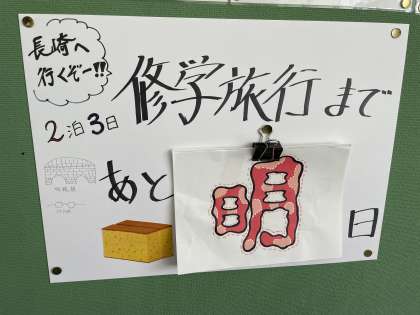 長崎へ
行くぞー!!
修学旅行まで
2泊3日
あと 明 日
眼鏡橋